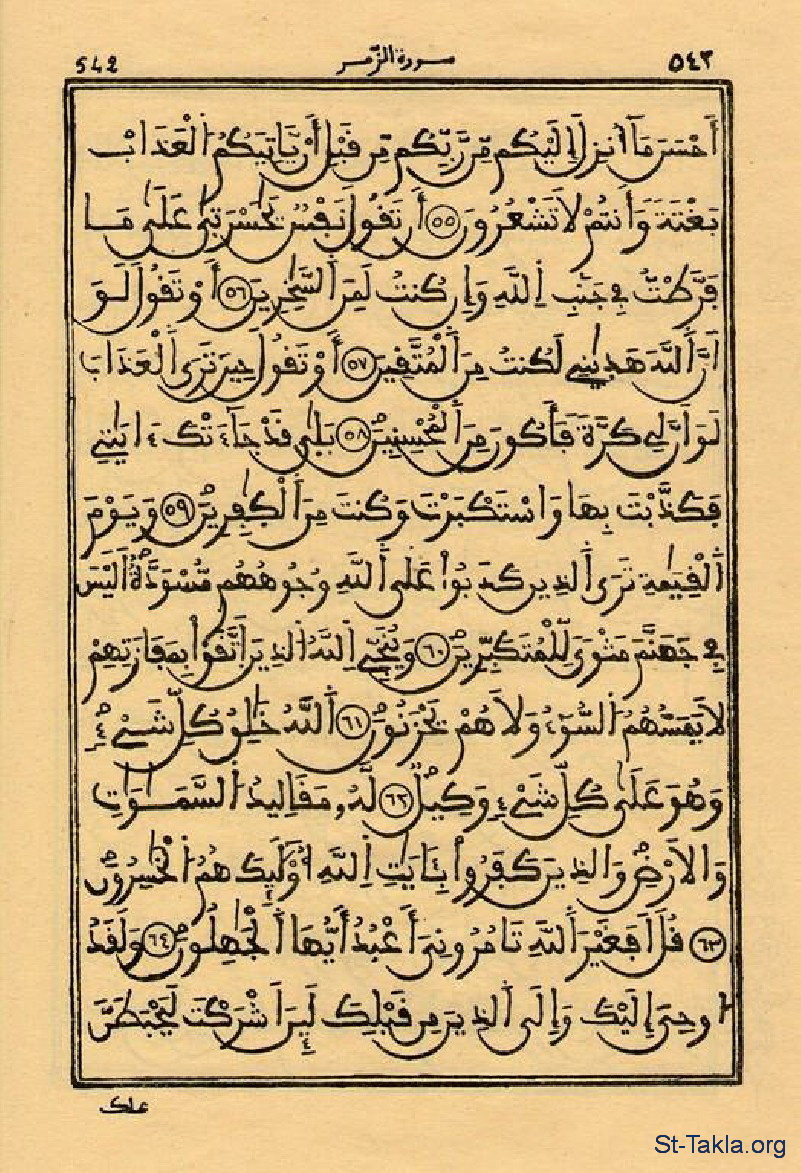 ٥٤٢ سورة الزّمر 542
أَحْسَنَ مَآ أُنزِلَ إِلَيْكُم مِّن رَّبِّكُم مِّن قَبْلِ أَنْ يَّاتِيَكُمُ الْعَذَابُ
بَغْتَةً وَأَنتُمْ لَا تَشْعُرُونَ ٥٥ أَن تَقُولَ نَفْسٌ يَٰحَسْرَتَىٰ عَلَىٰ مَا
فَرَّطتُّ فِي جَنۢبِ اِللَّهِ وَإِن كُنتُ لَمِنَ اَلسَّٰخِرِينَ ٥٦ أَوْ تَقُولَ لَوَ
اَنَّ اَللَّهَ هَدَىٰنِي لَكُنتُ مِنَ اَلْمُتَّقِينَ ٥٧ أَوْ تَقُولَ حِينَ تَرَى اَلْعَذَابَ
لَوَ اَنَّ لِي كَرَّةً فَأَكُونَ مِنَ اَلْمُحْسِنِينَ ٥٨ بَلَىٰ قَدْ جَآءَتْكَ ءَايَٰتِي
فَكَذَّبْتَ بِهَا وَاسْتَكْبَرْتَ وَكُنتَ مِنَ اَلْكَٰفِرِينَ ٥٩ وَيَوْمَ
اَلْقِيَٰمَةِ تَرَى اَلذِينَ كَذَبُوا عَلَى اَللَّهِ وُجُوهُهُم مُّسْوَدَّةٌ اَلَيْسَ
فِي جَهَنَّمَ مَثْوًى لِّلْمُتَكَبِّرِينَ ٦٠ وَيُنَجِّي اِللَّهُ اُلذِينَ اَتَّقَوْا بِمَفَازَتِهِمْ
لَا يَمَسُّهُمُ اُلسُّوٓءُ وَلَا هُمْ يَحْزَنُونَ ٦١ اَللَّهُ خَٰلِقُ كُلِّ شَيْءٍ
وَهُوَ عَلَىٰ كُلِّ شَيْءٍ وَكِيلٌ ٦٢ لَّهُ مَقَالِيدُ اُلسَّمَٰوَٰتِ
وَالَارْضِ وَالذِينَ كَفَرُوا بِـَٔايَٰتِ اِللَّهِ أُوْلَٰٓئِكَ هُمُ اُلْخَٰسِرُونَ
٦٣ قُلَ اَفَغَيْرَ اَللَّهِ تَامُرُونِيَ أَعْبُدُ أَيُّهَا اَلْجَٰهِلُونَ ٦٤ وَلَقَدُ
اوحِيَ إِلَيْكَ وَإِلَى اَلذِينَ مِن قَبْلِكَ لَئِنَ اَشْرَكْتَ لَيَحْبَطَنَّ
عملك
St-Takla.org